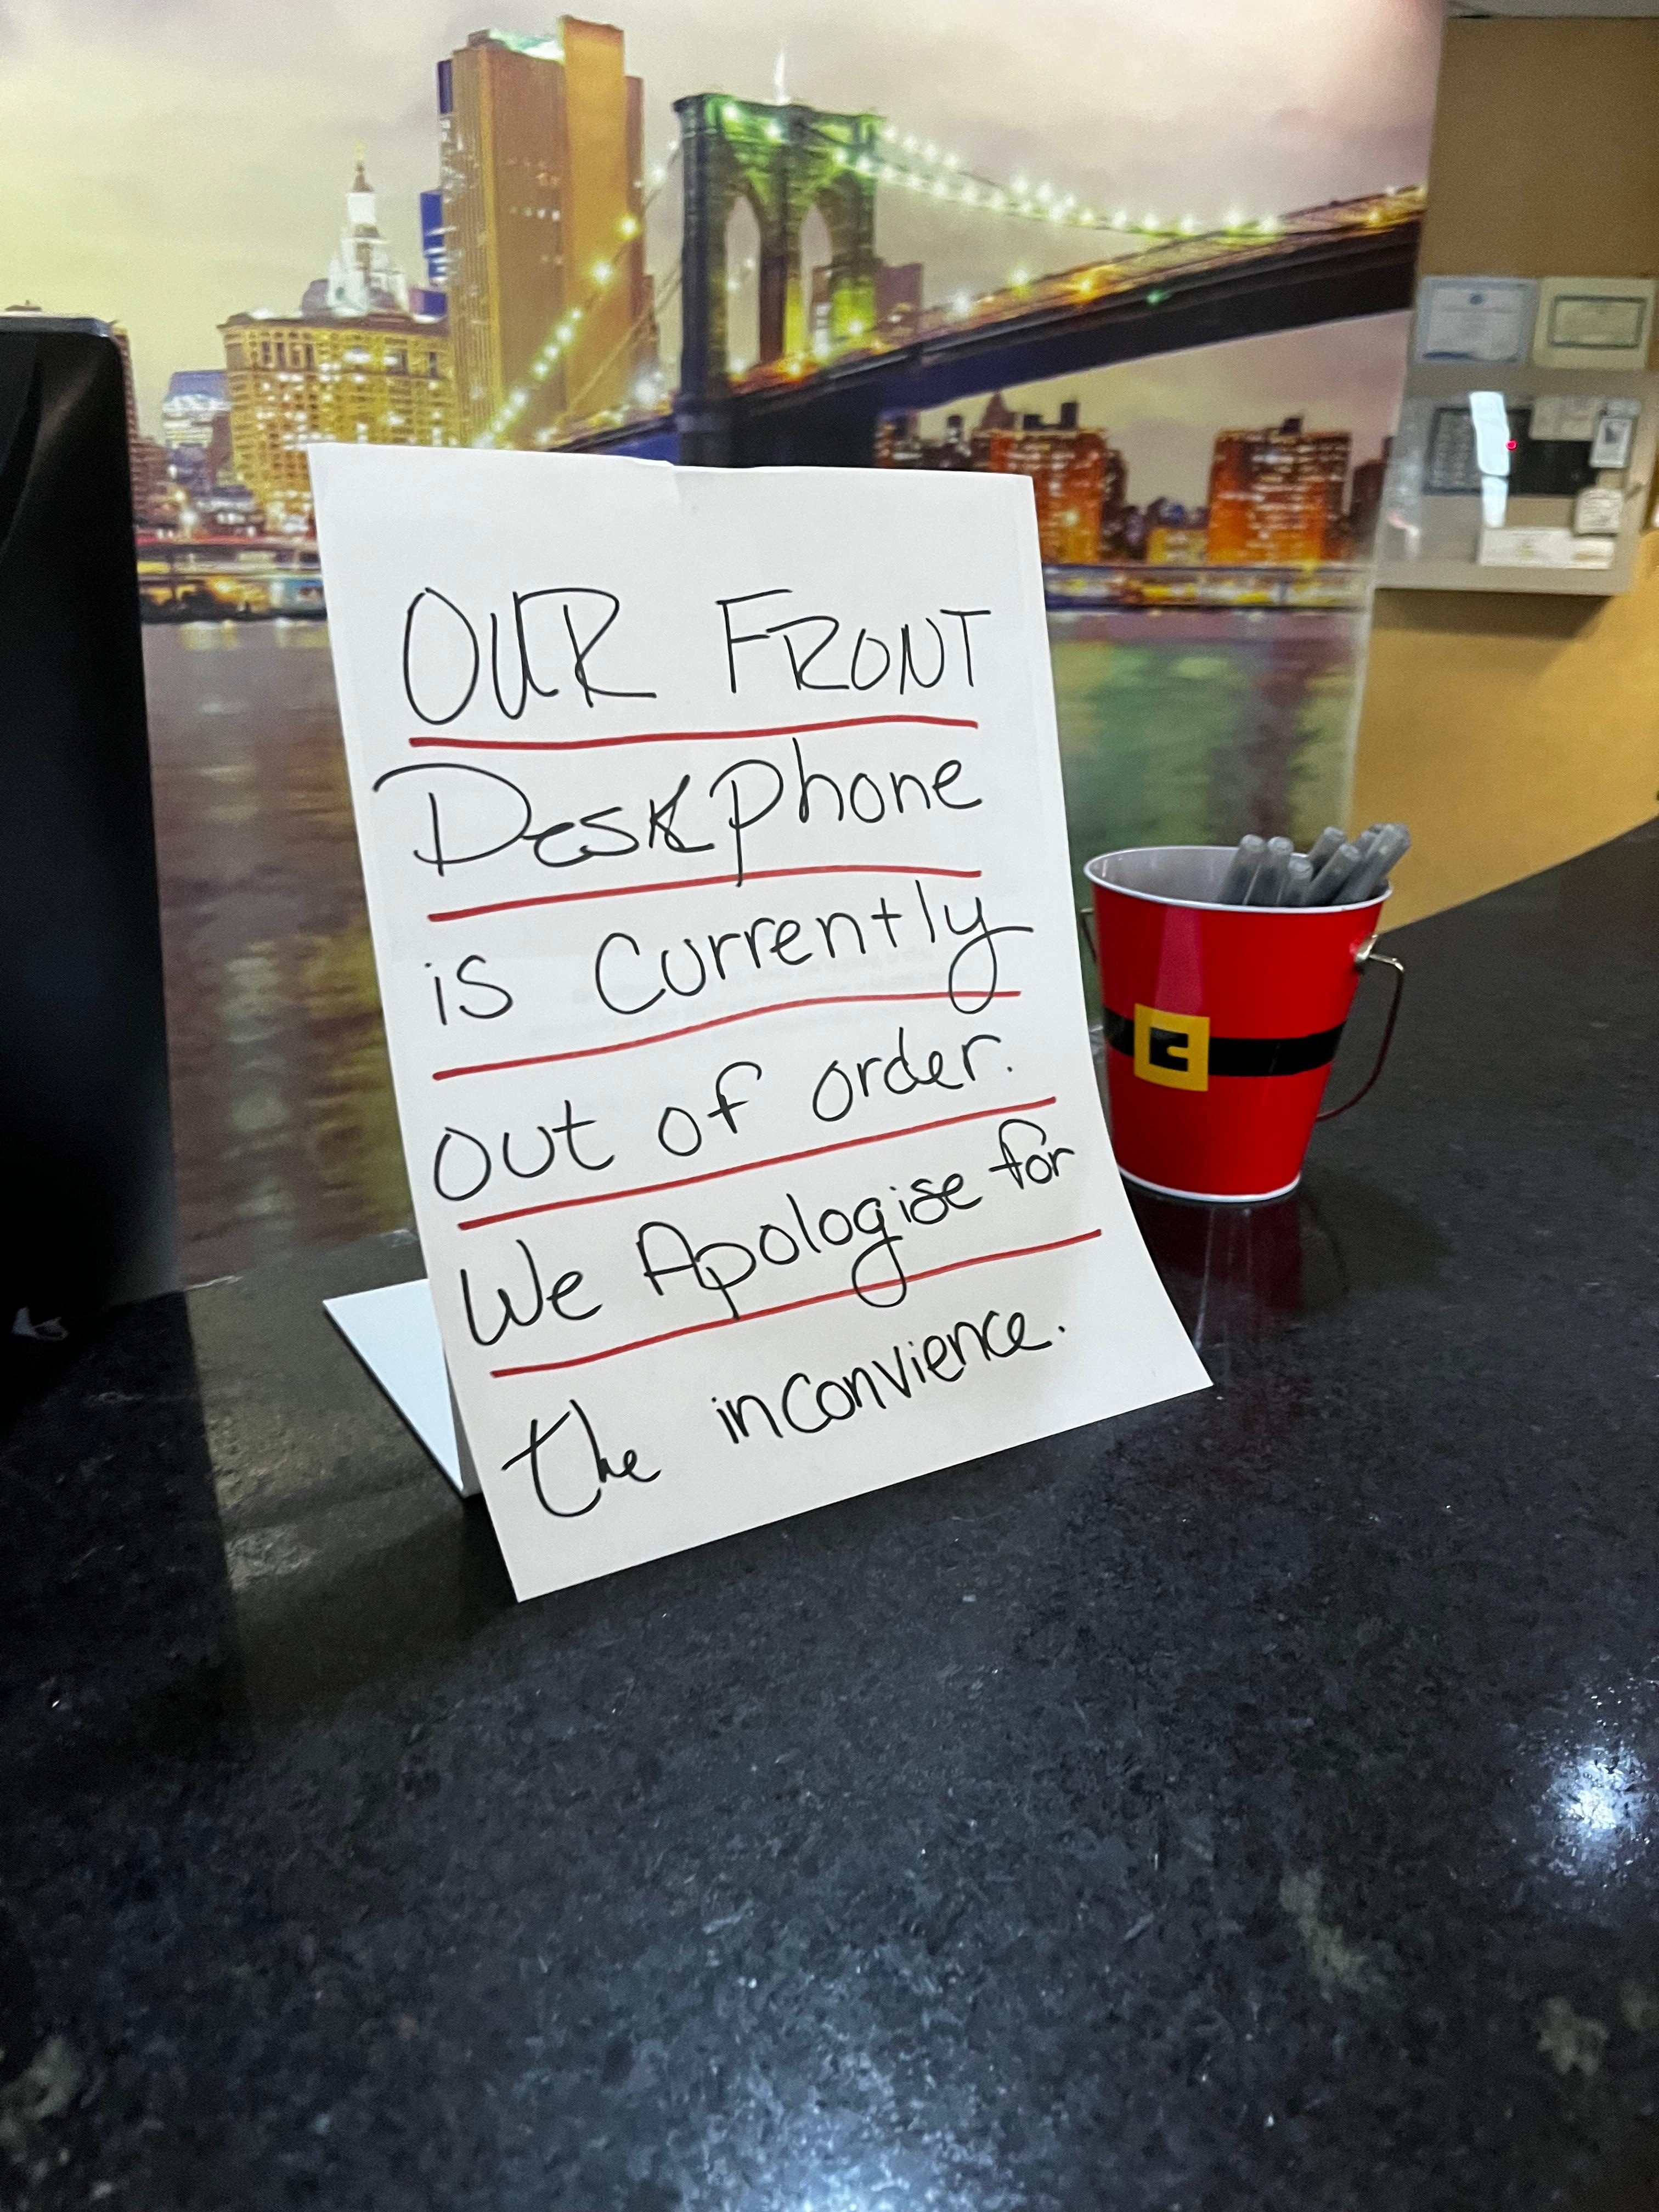 OUR FRONT
Desk Phone
is Currently
out of order.
We Apologise for
the inconvience.